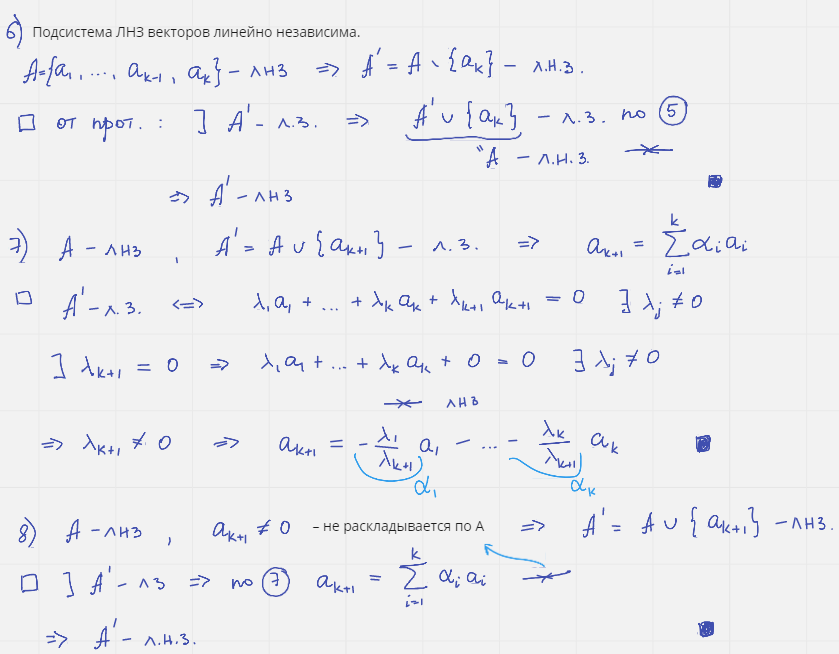 6) Подсистема ЛНЗ векторов линейно независима.
A={a₁, ..., aₖ₋₁, aₖ} – лнз ⇒ A' = A \ {aₖ} – л.н.з.
□ от прот. : ] A' – л.з. ⇒ A' ∪ {aₖ} – л.з. по ⑤
"A – л.н.з.
⇒ A' – лнз ■
7) A – лнз , A' = A ∪ {aₖ₊₁} – л.з. ⇒ aₖ₊₁ = ∑ᵢ₌₁ᵏ αᵢaᵢ
□ A' – л.з. ⇔ λ₁a₁ + ... + λₖaₖ + λₖ₊₁aₖ₊₁ = 0 ∃ λⱼ ≠ 0
] λₖ₊₁ = 0 ⇒ λ₁a₁ + ... + λₖaₖ + 0 = 0 ∃ λⱼ ≠ 0
лнз
⇒ λₖ₊₁ ≠ 0 ⇒ aₖ₊₁ = - λ₁/λₖ₊₁ a₁ - ... - λₖ/λₖ₊₁ aₖ ■
α₁ αₖ
8) A – лнз , aₖ₊₁ ≠ 0 – не раскладывается по А ⇒ A' = A ∪ {aₖ₊₁} – лнз.
□ ] A' – лз ⇒ по ⑦ aₖ₊₁ = ∑ᵢ₌₁ᵏ αᵢaᵢ
⇒ A' – л.н.з. ■